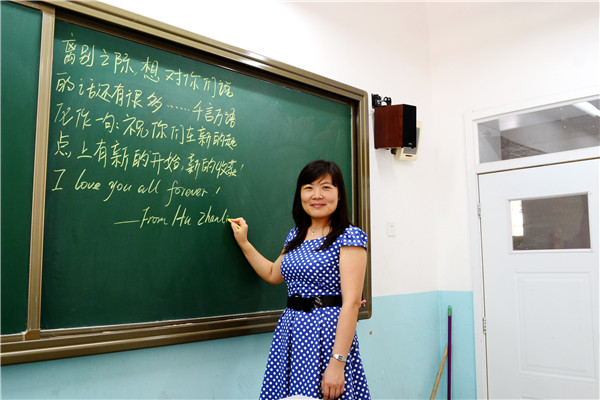 离别之际,想对你们说
的话还有很多……千言万语
化作一句:祝你们在新的起
点上有新的开始,新的收获!
I love you all forever!
—From Hu